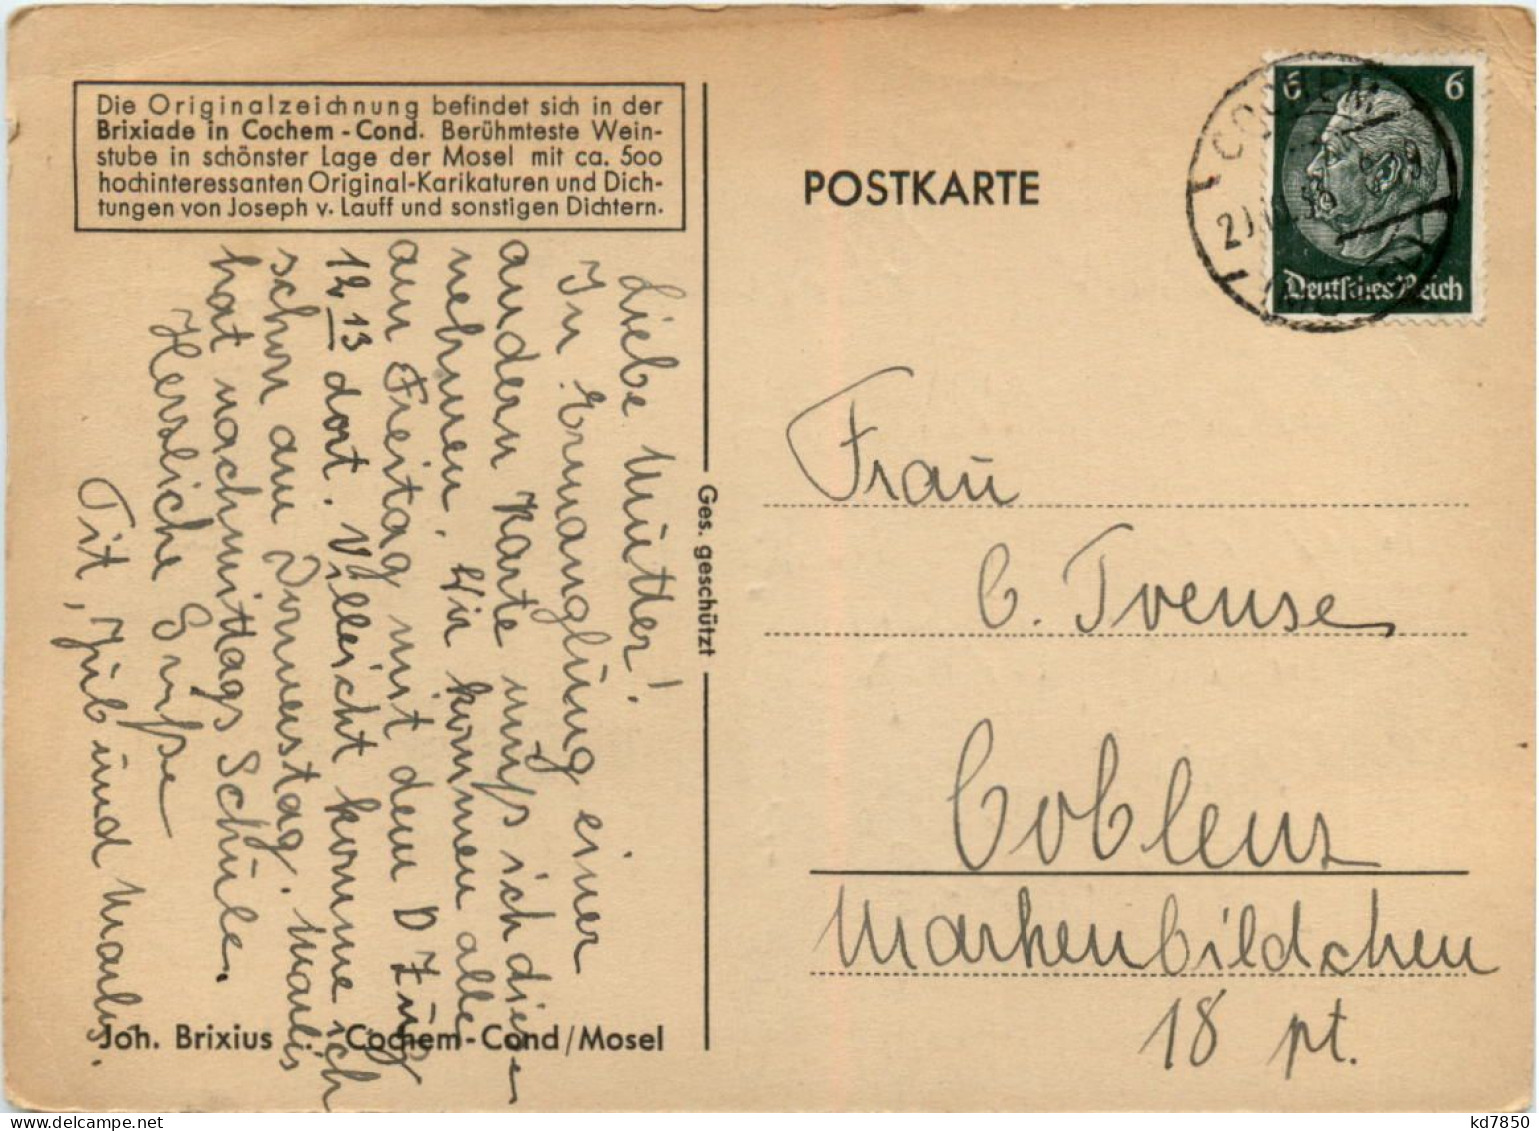 Die Originalzeichnung befindet sich in der
Brixiade in Cochem-Cond. Berühmteste Wein-
stube in schönster Lage der Mosel mit ca. 500
hochinteressanten Original-Karikaturen und Dich-
tungen von Joseph v. Lauff und sonstigen Dichtern.
POSTKARTE
6 6
COCHEM
Deutsches Reich
Liebe Mutter!
In Ermanglung einer
andern Karte muß ich diese
nehmen. Wir kommen alle
am Freitag mit dem D Zug
12 13 dort. Villeicht komme ich
schon am Donnerstag. Marlis
hat nachmittags Schule.
Herzliche Grüße
Tit, Jüb und Marlis.
Ges. geschützt
Frau
C. Treuse
Coblenz
Markenbildchen
18 pt.
Joh. Brixius · Cochem-Cond/Mosel
kd7850